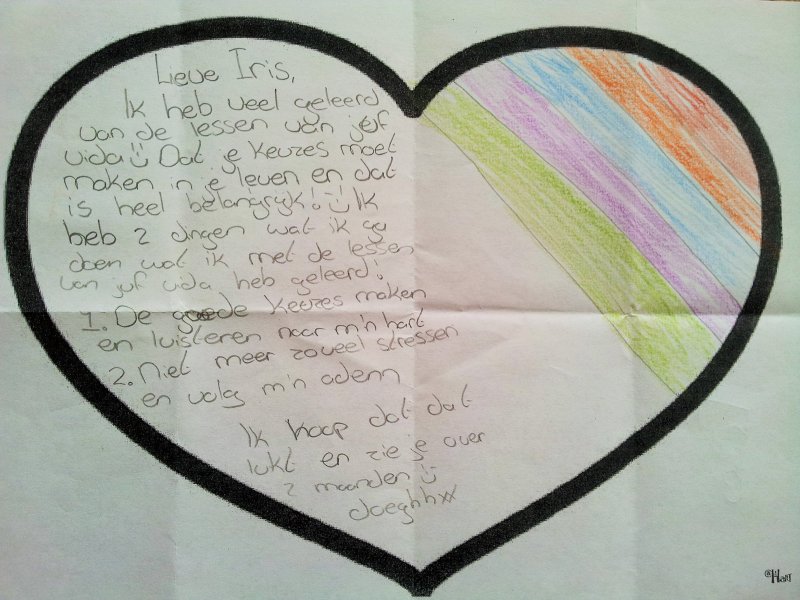 Lieve Iris,
Ik heb veel geleerd
van de lessen van jûf
vida! :) Dat je keuzes moet
maken in je leven en dat
is heel belangrijk! :) Ik
heb 2 dingen wat ik ga
doen wat ik met de lessen
van juf vida heb geleerd!
1. De goede keuzes maken
en luisteren naar m'n hart
2. Niet meer zoveel stressen
en volg m'n adem
Ik hoop dat dat
lukt en zie je over
2 maanden :)
doeghhxx
@Hart